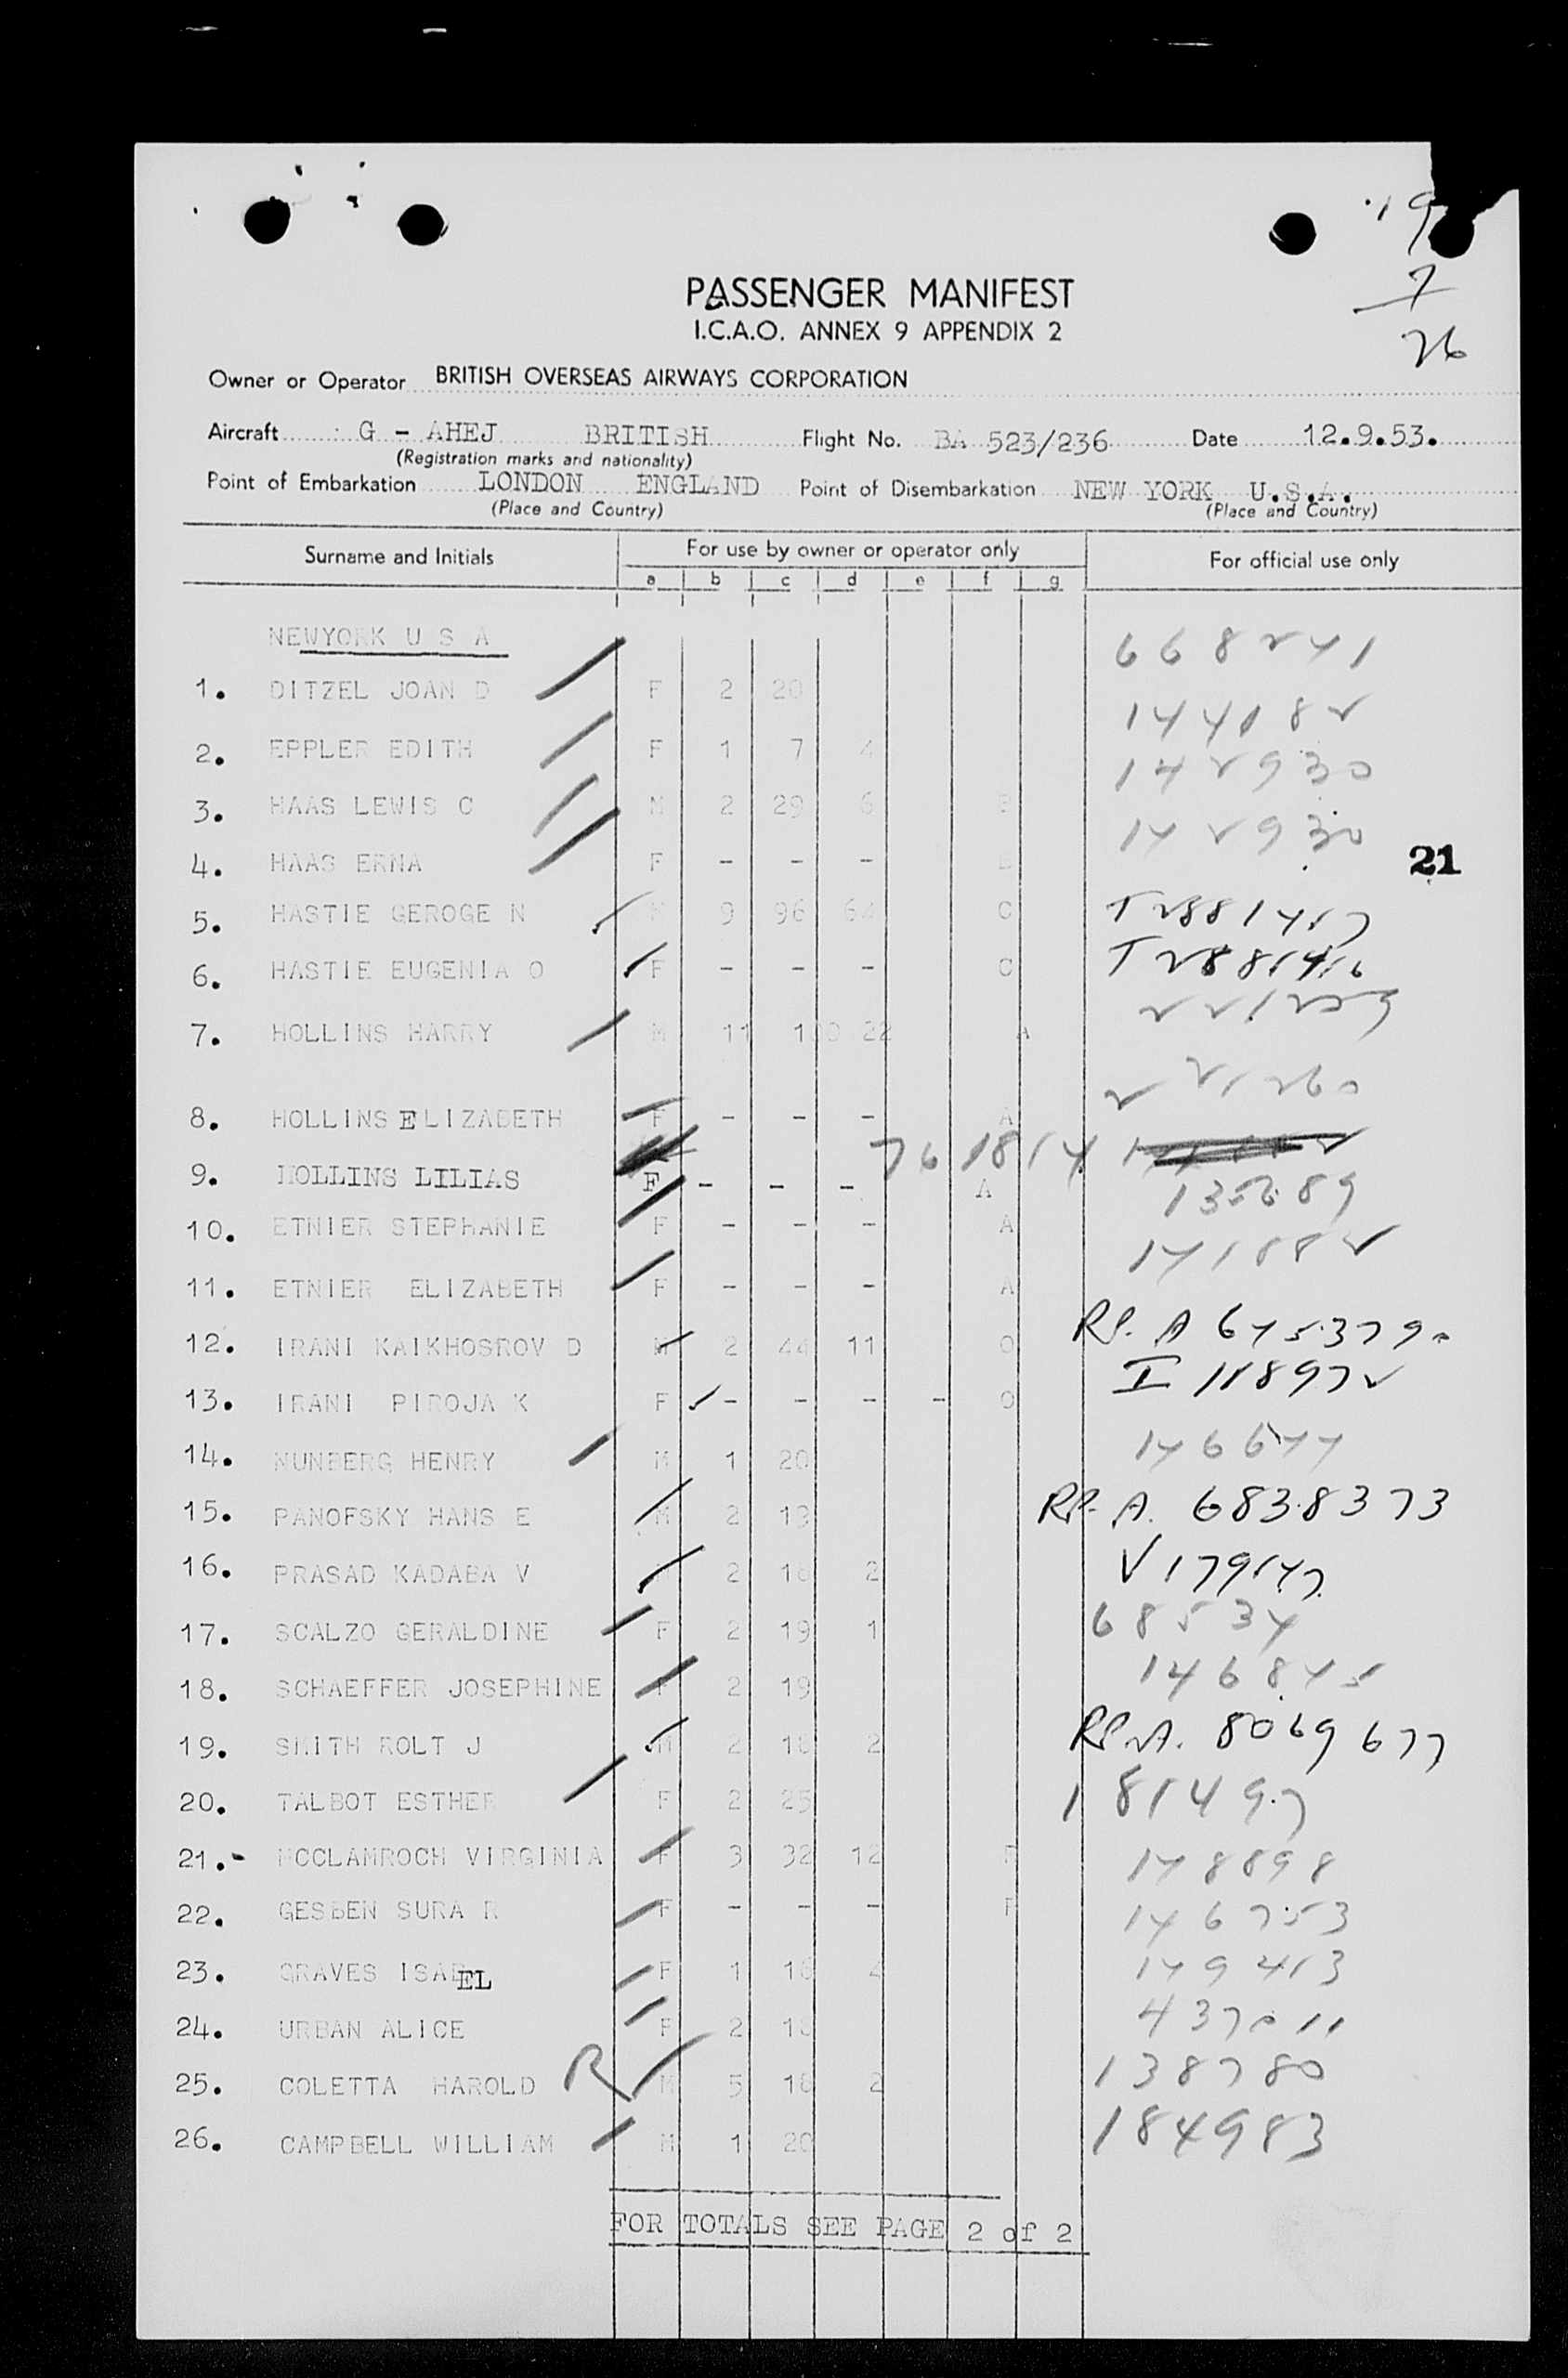 19
7
26
PASSENGER MANIFEST
I.C.A.O. ANNEX 9 APPENDIX 2
Owner or Operator BRITISH OVERSEAS AIRWAYS CORPORATION
Aircraft G - AHEJ BRITISH Flight No. BA 523/236 Date 12.9.53.
(Registration marks and nationality)
Point of Embarkation LONDON ENGLAND Point of Disembarkation NEW YORK U.S.A.
(Place and Country) (Place and Country)
Surname and Initials For use by owner or operator only For official use only
a b c d e f g
NEWYORK U S A
1. DITZEL JOAN D F 2 20 668241
2. EPPLER EDITH F 1 7 4 144182
3. HAAS LEWIS C M 2 29 6 B 142930
4. HAAS ERNA F - - - B 142930
21
5. HASTIE GEROGE N M 9 96 64 C
6. HASTIE EUGENIA O F - - - C
7. HOLLINS HARRY M 11 22 A
8. HOLLINS ELIZABETH F - - - A 221260
9. HOLLINS LILIAS F - - - A 761814
10. ETNIER STEPHANIE F - - - A
11. ETNIER ELIZABETH F - - - A 141882
12. IRANI KAIKHOSROV D M 2 44 11 O
13. IRANI PIROJA K F - - - - O I 118972
14. NUNBERG HENRY M 1 20 146644
15. PANOFSKY HANS E M 2 13 RP. A. 6838373
16. PRASAD KADABA V 2 18 2 V179147
17. SCALZO GERALDINE F 2 19 1 68534
18. SCHAEFFER JOSEPHINE F 2 19 146845
19. SMITH ROLT J M 2 18 2 RP.A. 8069677
20. TALBOT ESTHER F 2 25 181497
21.- MCCLAMROCH VIRGINIA F 3 32 12 F 148898
22. GESBEN SURA R F - - - F 146753
23. GRAVES ISABEL F 1 16 4 149413
24. URBAN ALICE F 2 437011
25. COLETTA HAROLD R M 5 18 2 138780
26. CAMPBELL WILLIAM M 1 20 184983
FOR TOTALS SEE PAGE 2 of 2